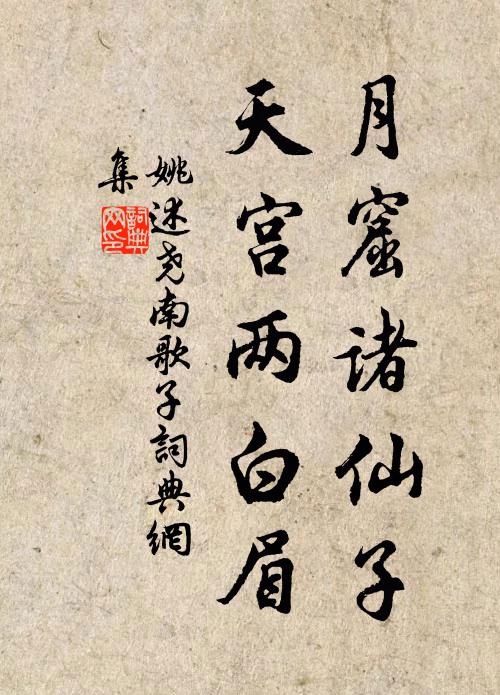 月窟诸仙子
天宫两白眉
姚述尧南歌子詞典網
集
詞典
网印